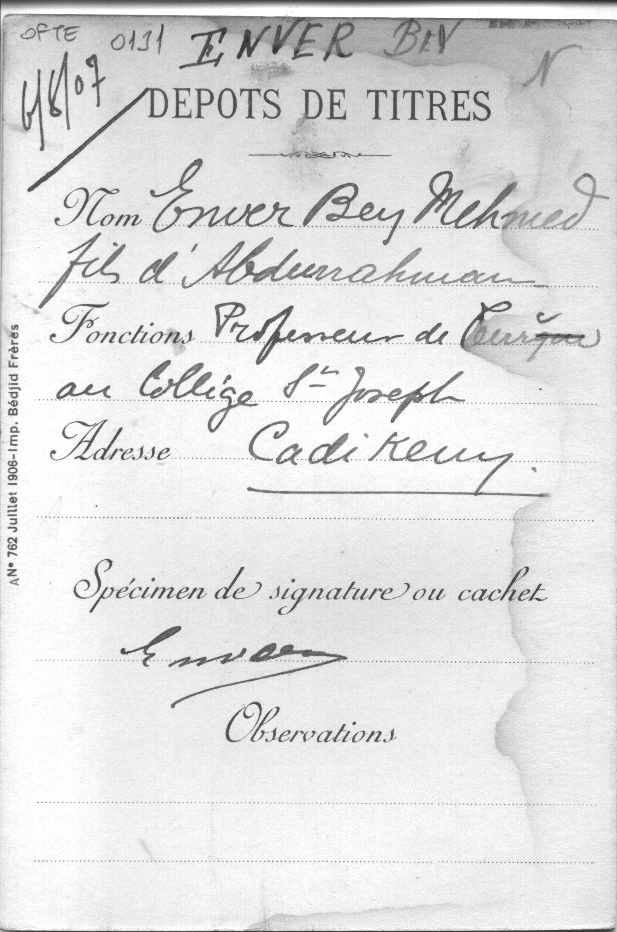 OFTE 0131 ENVER BEY N
6/8/07
DEPOTS DE TITRES
Nom Enver Bey Mehmed
fils d'Abdurrahman
Fonctions Professeur de
au Collège St Joseph
Adresse Cadi Keuy.
Spécimen de signature ou cachet
Enver
Observations
AN° 762 Juillet 1906-Imp. Bédjid Frères